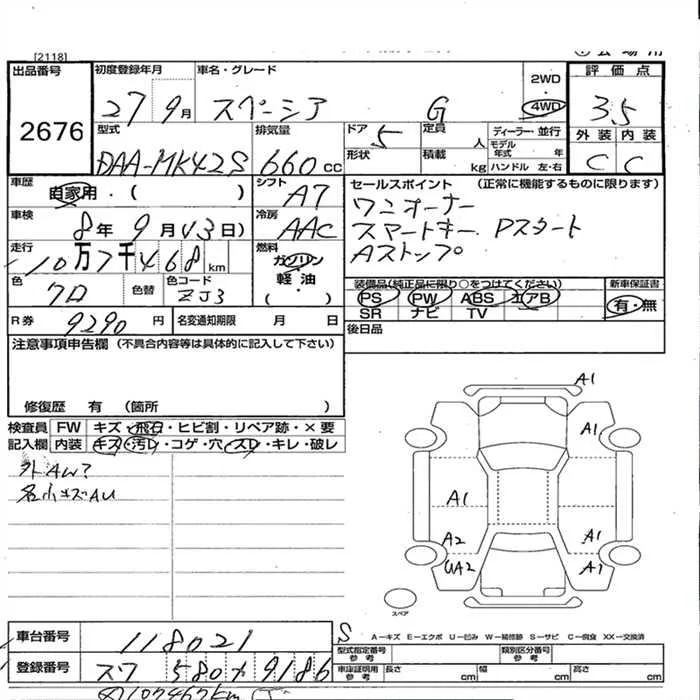 [2118]
出品番号 初度登録年月 車名・グレード 2WD 評価点
2676 27 9月 スペーシア G 4WD 3.5
型式 排気量 ドア 定員 ディーラー・並行 外装 内装
DAA-MK42S 660cc 5 人 モデル年式 年 C C
形状 積載 kg ハンドル 左・右
車歴 自家用・( ) シフト A7 セールスポイント (正常に機能するものに限ります)
車検 8年9月13日) 冷房 AAC ワンオーナー
スマートキー Pスタート
Aストップ
走行 10万7千468km 燃料 ガソリン
軽油
( )
色 クロ 色替 色コード ZJ3
装備品(純正品に限り○をつけてください) 新車保証書
PS PW ABS エアB 有・無
SR ナビ TV
R券 9290円 名変通知期限 月 日 後日品
注意事項申告欄 (不具合内容等は具体的に記入して下さい)
修復歴 有 (箇所 )
検査員 FW キズ・飛石・ヒビ割・リペア跡・×要
記入欄 内装 キズ・汚レ・コゲ・穴・スレ・キレ・破レ
外AW?
名小キズAU
A1
A1
A1
A2 A1
UA2 A1
スペア
S
A-キズ E-エクボ U-凹み W-補修跡 S-サビ C-腐食 XX-交換済
車台番号 118021
型式指定番号 参考 類別区分番号 参考
登録番号 580 9186
車庫証明用 参考 長さ cm 幅 cm 高さ cm